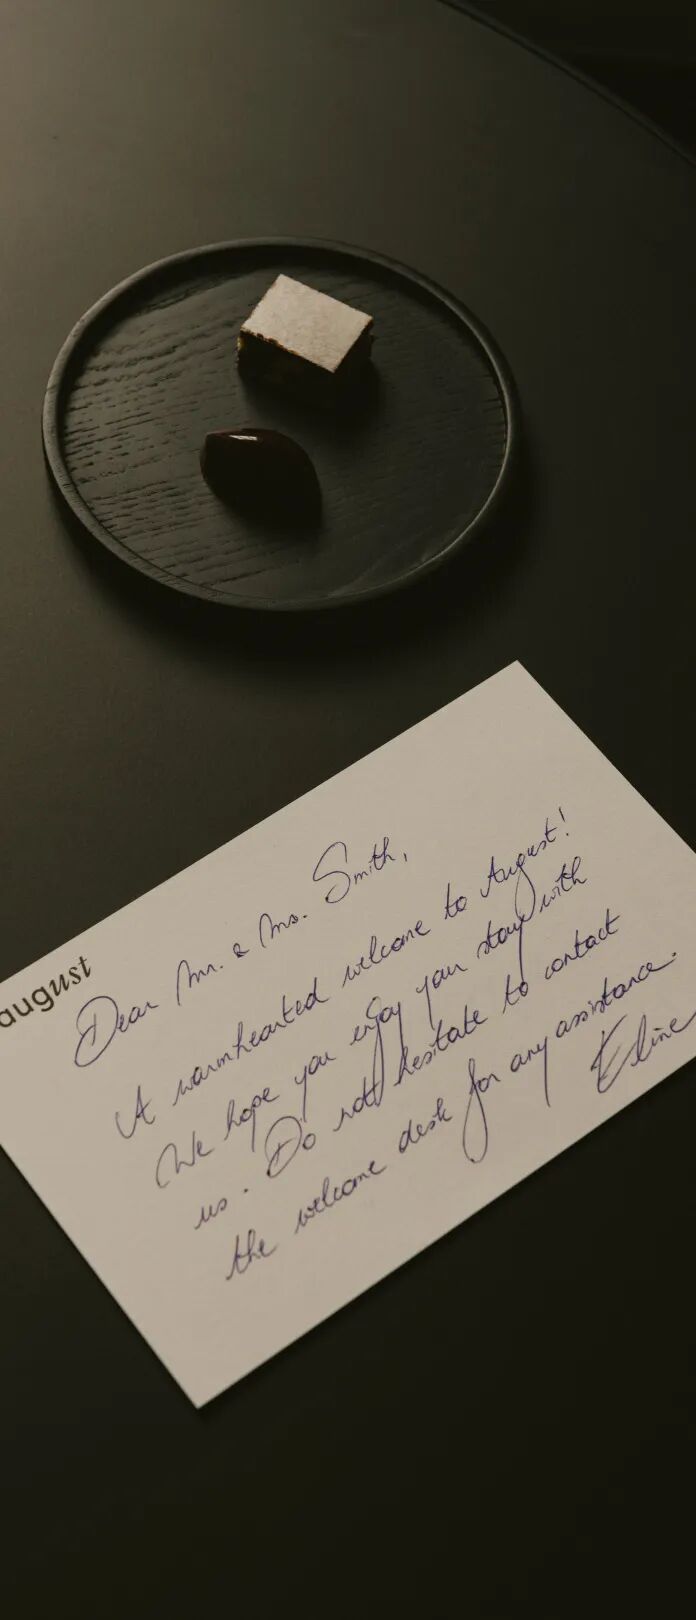 august
Dear Mr. & Ms. Smith,
A warmhearted welcome to August!
We hope you enjoy your stay with
us. Do not hesitate to contact
the welcome desk for any assistance.
Eline